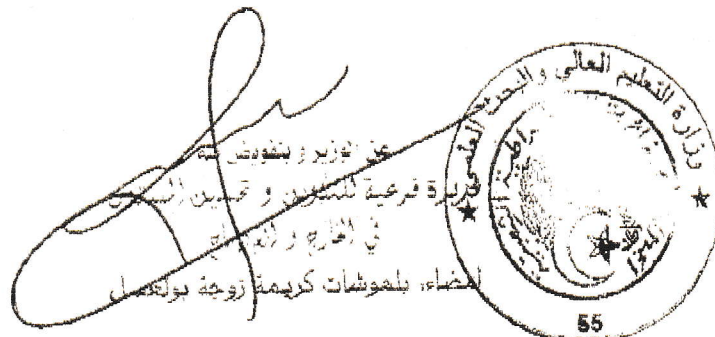 وزارة التعليم العالي والبحث العلمي
عن الوزير و بتفويض منه
مديرة فرعية للتكوين و تحسين المستوى
في الخارج و
إمضاء، بلهوشات كريمة زوجة بولفضل
55